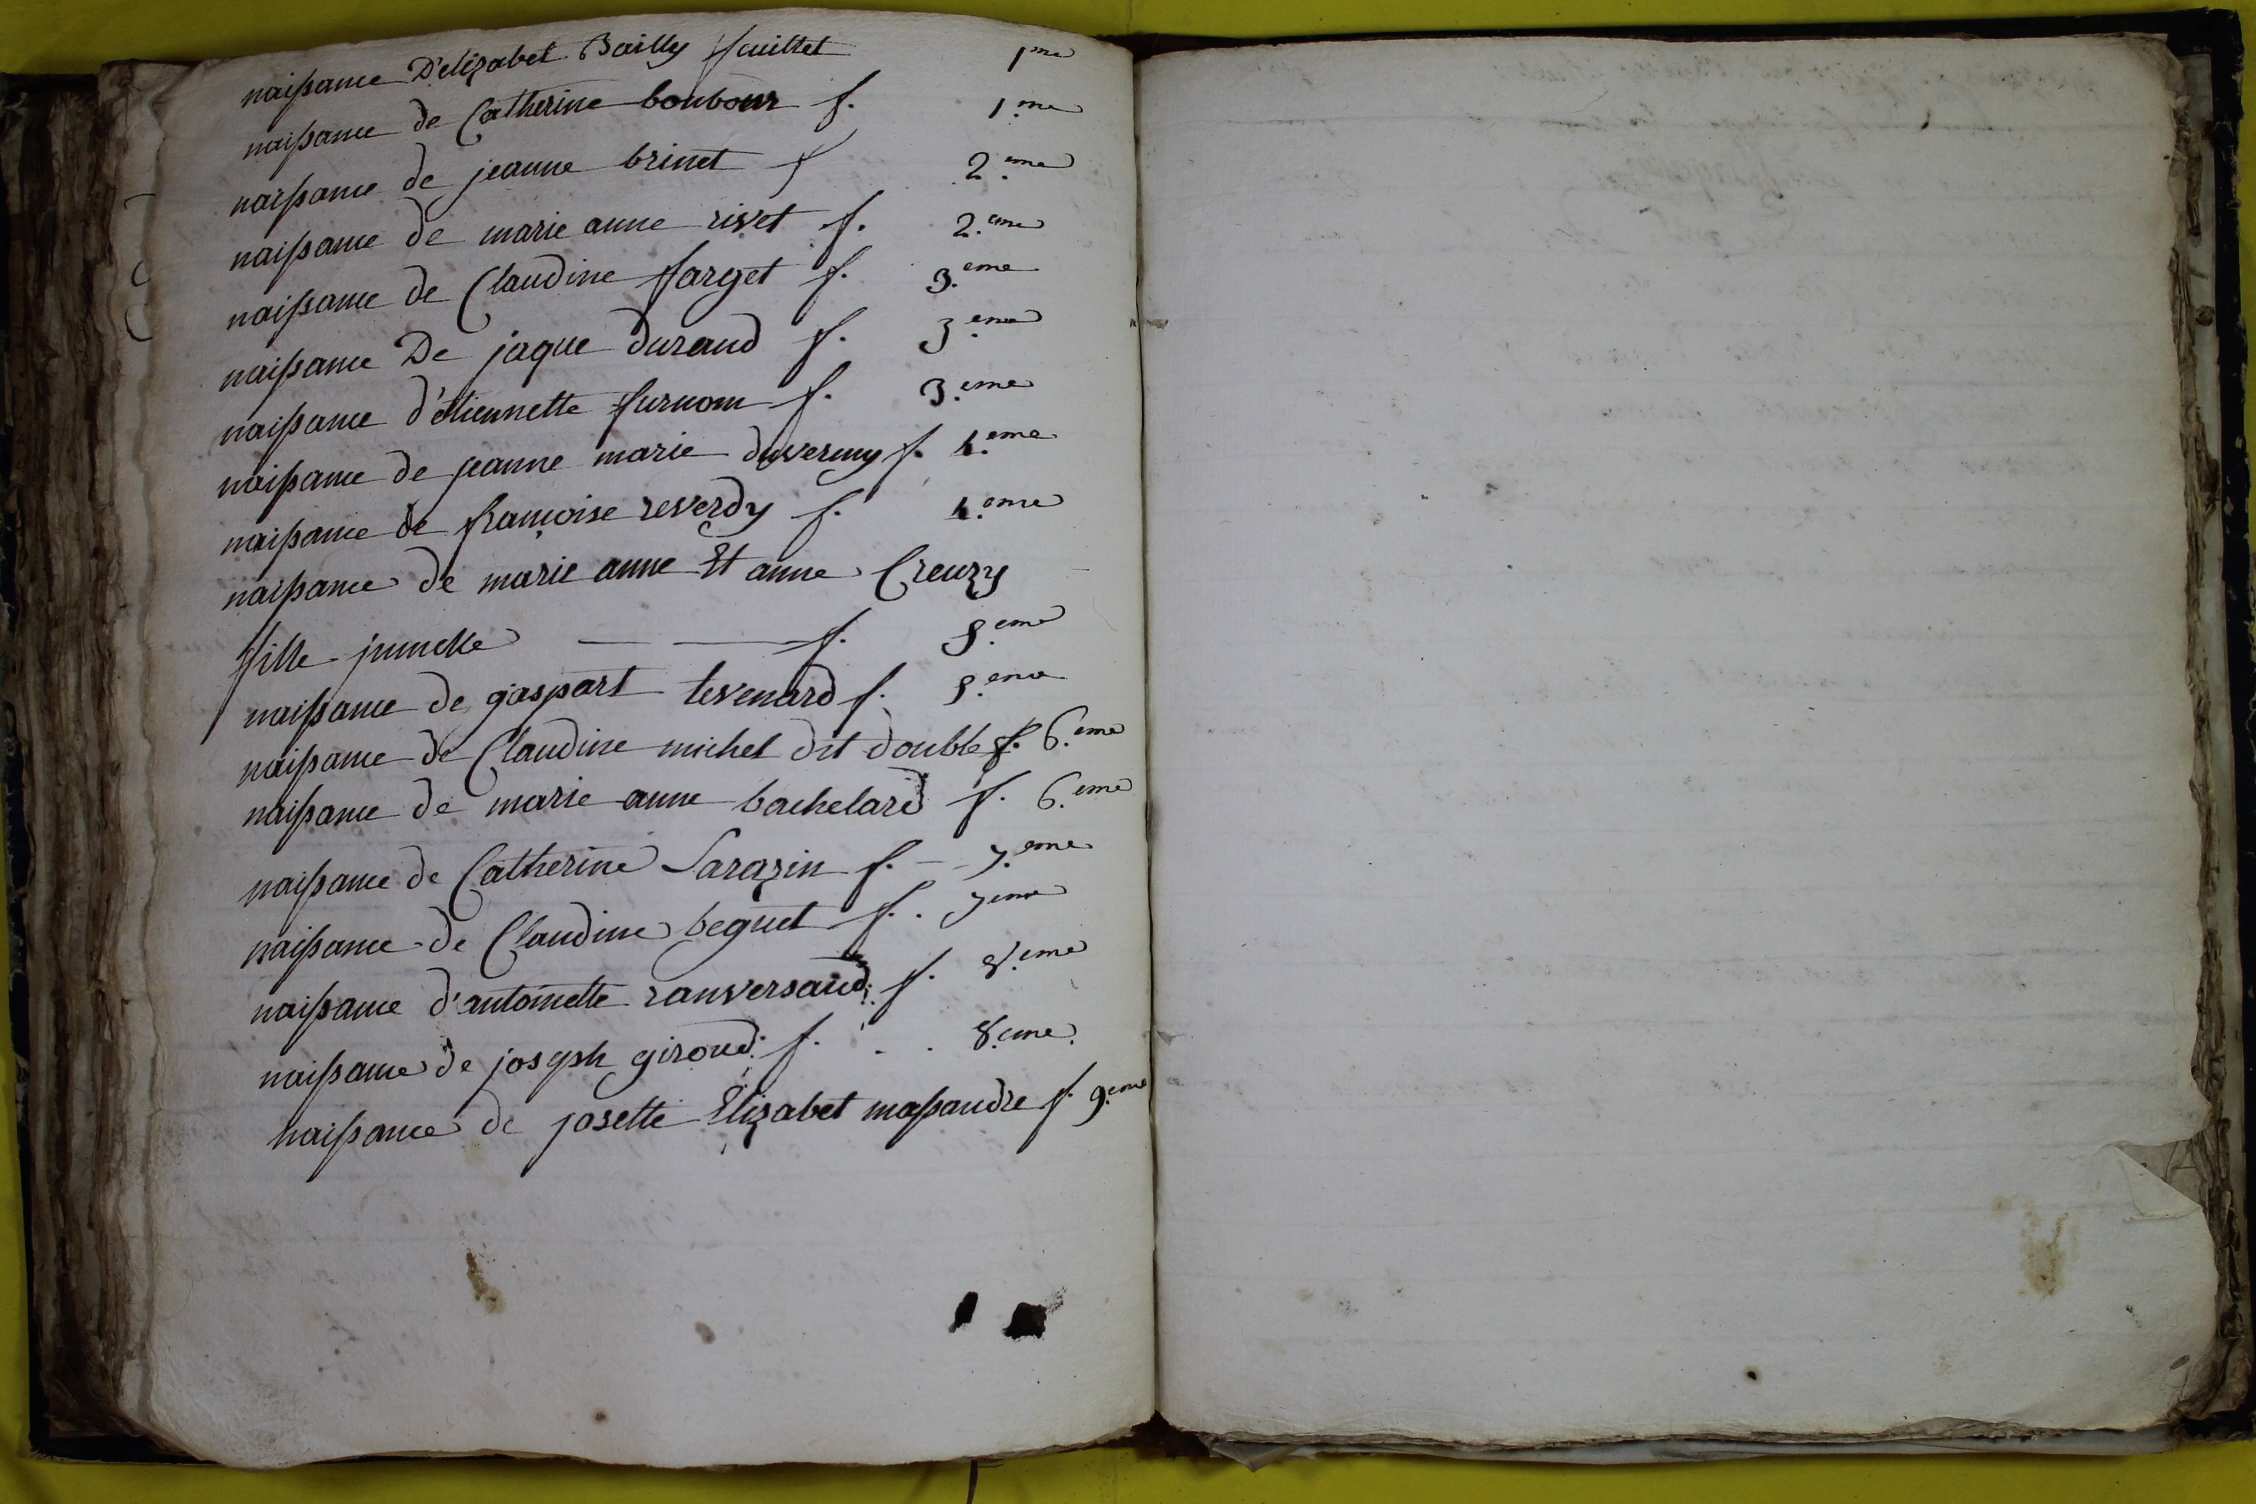 naissance D'elizabet Bailly fueillet 1me
naissance de Catherine boubour f. 1.me
naissance de jeanne brinet f 2.eme
naissance de marie anne rivet f. 2.eme
naissance de Claudine farget f. 3.eme
naissance De jaque durand f. 3.eme
naissance d'etiennette furnom f. 3.eme
naissance de jeanne marie duverny f. 4.eme
naissance de françoise reverdy f. 4.eme
naissance de marie anne Et anne Creuzy
fille jumelle f. 5.eme
naissance de gaspart tevenard f. 5.eme
naissance de Claudine michel dit double f. 6.eme
naissance de marie anne bachelard f. 6.eme
naissance de Catherine Sarazin f. 7.eme
naissance de Claudine beguet f. 7eme
naissance d'antoinette ranversaud f. 8.eme
naissance de joseph giroud f. 8.eme
naissance de josette Elizabet massaudre f. 9.eme